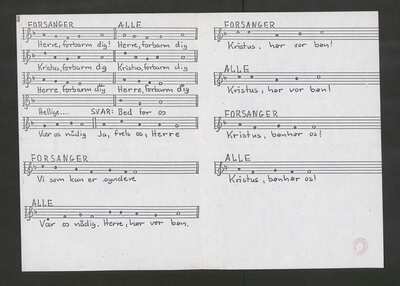 FORSANGER ALLE
Herre, forbarm dig! Herre, forbarm dig
Kristus, forbarm dig Kristus, forbarm dig
Herre forbarm dig Herre, forbarm dig
Hellige... SVAR: Bed for os
Vær os nådig Ja, frels os, Herre
FORSANGER
Vi som kun er syndere
ALLE
Vær os nådig. Herre, hør vor bøn.
FORSANGER
Kristus, hør vor bøn!
ALLE
Kristus, hør vor bøn!
FORSANGER
Kristus, bønhør os!
ALLE
Kristus, bønhør os!